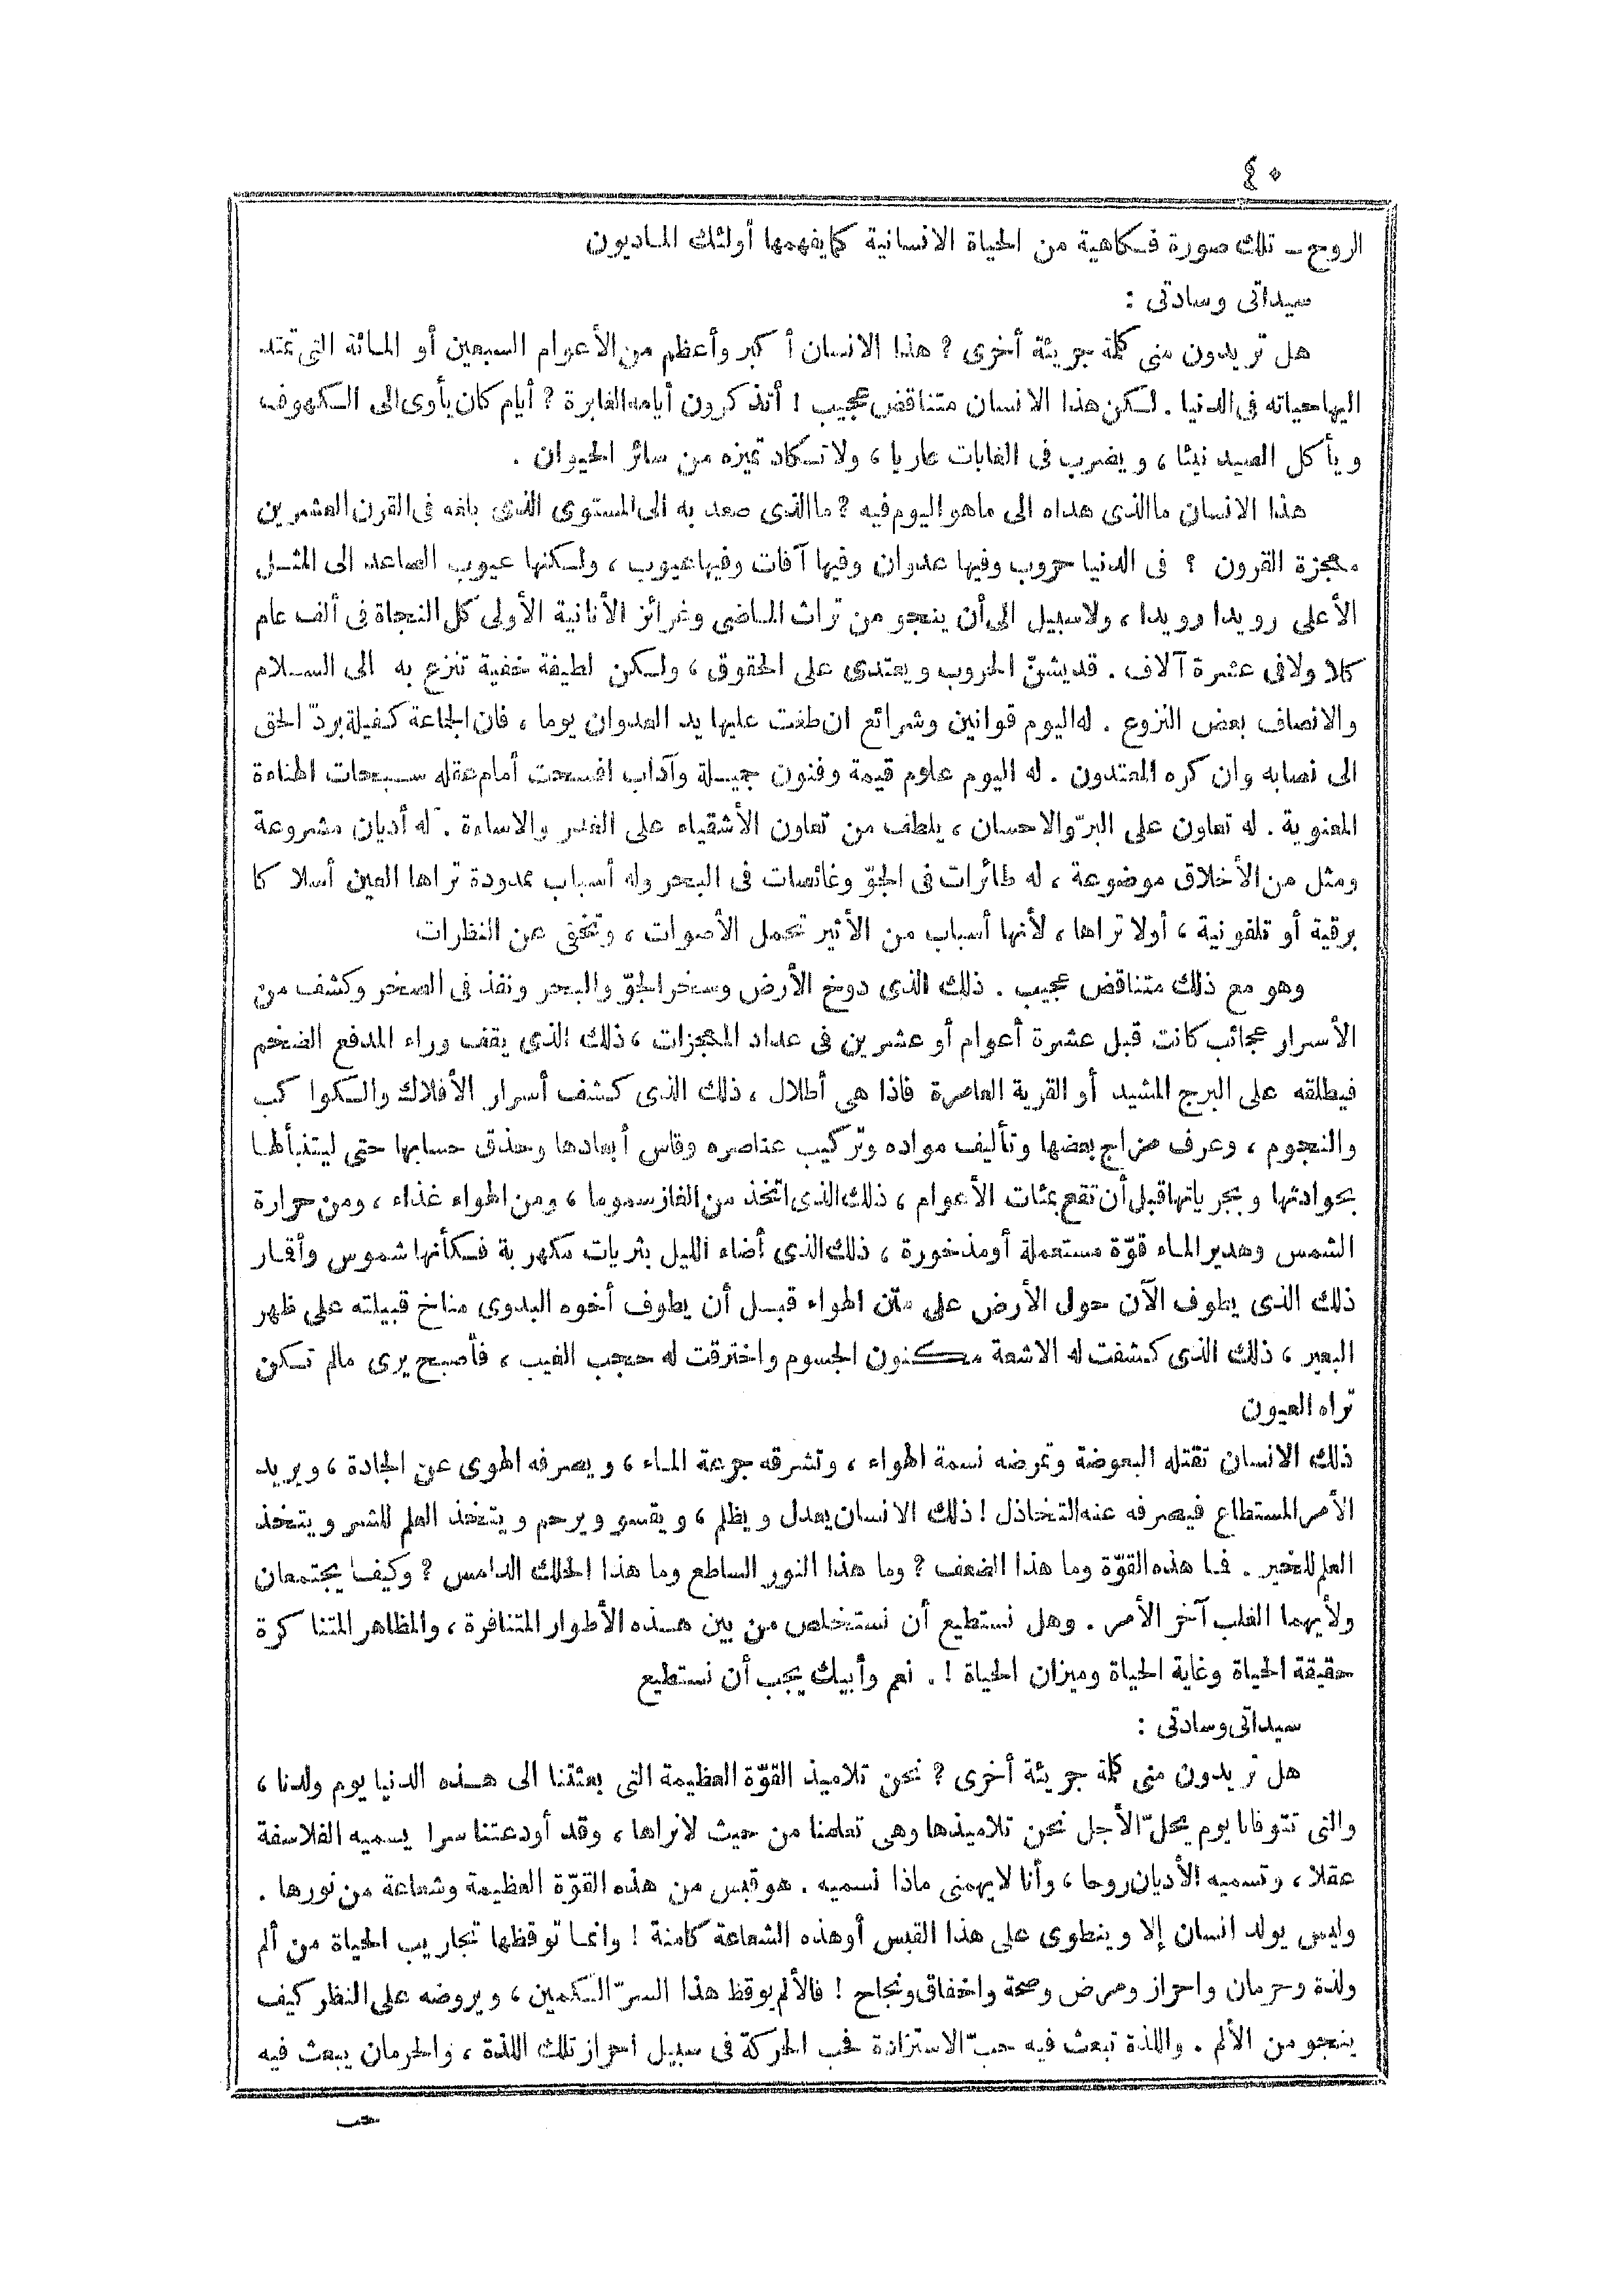 ٤٠
الروح ــ تلك صورة فكاهية من الحياة الانسانية كما يفهمها أولئك الماديون
سيداتى وسادتى :
هل تريدون منى كلمة جريئة أخرى ؟ هذا الانسان أكبر وأعظم من الأعوام السبعين أو المائة التى تمتد
اليها حياته فى الدنيا . لكن هذا الانسان متناقض عجيب ! أتذكرون أيامه الغابرة ؟ أيام كان يأوى الى الكهوف
ويأكل الصيد نيئا ، ويضرب فى الغابات عاريا ، ولا تكاد تميزه من سائر الحيوان .
هذا الانسان ما الذى هداه الى ما هو اليوم فيه ؟ ما الذى صعد به الى المستوى الذى بلغه فى القرن العشرين
معجزة القرون ؟ فى الدنيا حروب وفيها عدوان وفيها آفات وفيها عيوب ، ولكنها عيوب الصاعد الى المثل
الأعلى رويدا رويدا ، ولا سبيل الى أن ينجو من تراث الماضى وغرائز الأنانية الأولى كل النجاة فى ألف عام
كلا ولا فى عشرة آلاف . قد يشنّ الحروب ويعتدى على الحقوق ، ولكن لطيفة خفية تنزع به الى السلام
والانصاف بعض النزوع . له اليوم قوانين وشرائع ان طغت عليها يد العدوان يوما ، فان الجماعة كفيلة بردّ الحق
الى نصابه وان كره المعتدون . له اليوم علوم قيمة وفنون جميلة وآداب افسحت أمام عقله سبحات الهناءة
المعنوية . له تعاون على البرّ والاحسان ، يلطف من تعاون الأشقياء على الغدر والاساءة . له أديان مشروعة
ومثل من الأخلاق موضوعة ، له طائرات فى الجوّ وغائصات فى البحر وله أسباب ممدودة تراها العين أسلاكا
برقية أو تلفونية ، أولا تراها ، لأنها أسباب من الأثير تحمل الأصوات ، وتخفى عن النظرات
وهو مع ذلك متناقض عجيب . ذلك الذى دوخ الأرض وسخر الجوّ والبحر ونفذ فى الصخر وكشف من
الأسرار عجائب كانت قبل عشرة أعوام أو عشرين فى عداد المعجزات ، ذلك الذى يقف وراء المدفع الضخم
فيطلقه على البرج المشيد أو القرية العامرة فاذا هى أطلال ، ذلك الذى كشف أسرار الأفلاك والكواكب
والنجوم ، وعرف مزاج بعضها وتأليف مواده وتركيب عناصره وقاس أبعادها وحذق حسابها حتى ليتنبأ لها
بحوادثها وبمجرياتها قبل أن تقع بمئات الأعوام ، ذلك الذى اتخذ من الغاز سموما ، ومن الهواء غذاء ، ومن حرارة
الشمس وهدير الماء قوّة مستعملة أو مذخورة ، ذلك الذى أضاء الليل بثريات مكهربة فكأنها شموس وأقمار
ذلك الذى يطوف الآن حول الأرض على متن الهواء قبل أن يطوف أخوه البدوى مناخ قبيلته على ظهر
البعير ، ذلك الذى كشفت له الاشعة مكنون الجسوم واخترقت له حجب الغيب ، فأصبح يرى مالم تكن
تراه العيون
ذلك الانسان تقتله البعوضة وتمرضه نسمة الهواء ، وتشرقه جرعة الماء ، ويصرفه الهوى عن الجادة ، ويريد
الأمر المستطاع فيصرفه عنه التخاذل ! ذلك الانسان يعدل ويظلم ، ويقسو ويرحم ويتخذ العلم للشر ويتخذ
العلم للخير . فما هذه القوّة وما هذا الضعف ؟ وما هذا النور الساطع وما هذا الحلك الدامس ؟ وكيف يجتمعان
ولأيهما الغلب آخر الأمر . وهل نستطيع أن نستخلص من بين هذه الأطوار المتنافرة ، والمظاهر المتناكرة
حقيقة الحياة وغاية الحياة وميزان الحياة ! . نعم وأبيك يجب أن نستطيع
سيداتى وسادتى :
هل تريدون منى كلمة جريئة أخرى ؟ نحن تلاميذ القوّة العظيمة التى بعثتنا الى هذه الدنيا يوم ولدنا ،
والتى تتوفانا يوم يحلّ الأجل نحن تلاميذها وهى تعلمنا من حيث لا نراها ، وقد أودعتنا سرا يسميه الفلاسفة
عقلا ، وتسميه الأديان روحا ، وأنا لا يهمنى ماذا نسميه . هو قبس من هذه القوّة العظيمة وشعاعة من نورها .
وليس يولد انسان إلا وينطوى على هذا القبس أو هذه الشعاعة كامنة ! وانما توقظها تجاريب الحياة من ألم
ولذة وحرمان واحراز ومرض وصحة واخفاق ونجاح ! فالألم يوقظ هذا السرّ الكمين ، ويروضه على النظر كيف
ينجو من الألم . واللذة تبعث فيه حبّ الاستزادة فحب الحركة فى سبيل احراز تلك اللذة ، والحرمان يبعث فيه